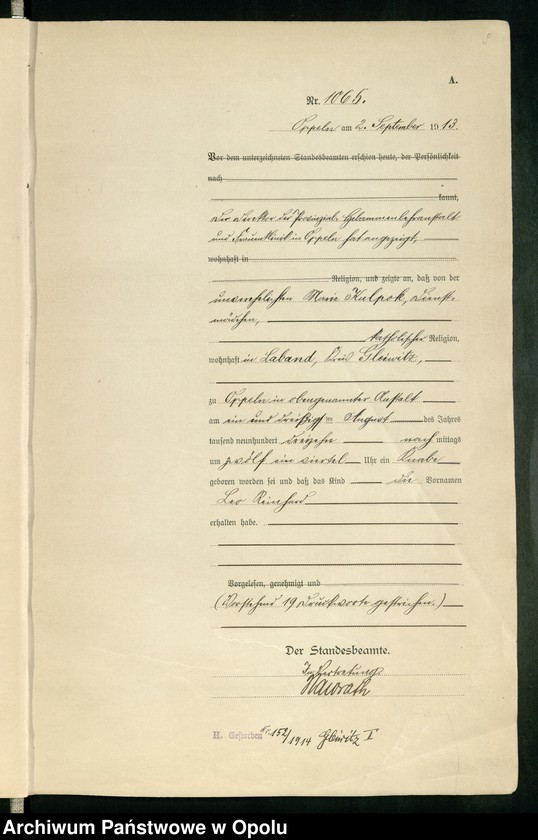 A.
Nr. 1065.
Oppeln am 2. September 1913.
Vor dem unterzeichneten Standesbeamten erschien heute, der Persönlichkeit
nach
kannt,
Der Direktor der Provinzial-Hebammenlehranstalt
und Frauenklinik in Oppeln hat angezeigt,
wohnhaft in
Religion, und zeigte an, daß von der
unverehelichten Marie Kulpok, Dienst-
mädchen,
katholischer Religion,
wohnhaft in Laband, Kreis Gleiwitz,
zu Oppeln in obengenannter Anstalt
am ein und dreißigsten August des Jahres
tausend neunhundert dreizehn nach mittags
um zwölf ein viertel Uhr ein Knabe
geboren worden sei und daß das Kind die Vornamen
Leo Reinhard
erhalten habe.
Vorgelesen, genehmigt und
(Vorstehend 19 Druckworte gestrichen.)
Der Standesbeamte.
In Vertretung
Nawrath
H. Gestorben Nr. 152/1914 Gleiwitz I
Archiwum Państwowe w Opolu